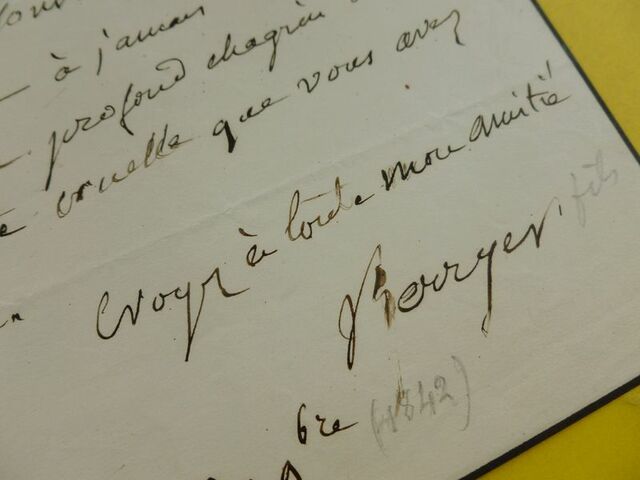 à jamais
profond chagrin
cruelle que vous avez
croyez à toute mon amitié
Berryer fils
6re (1842)